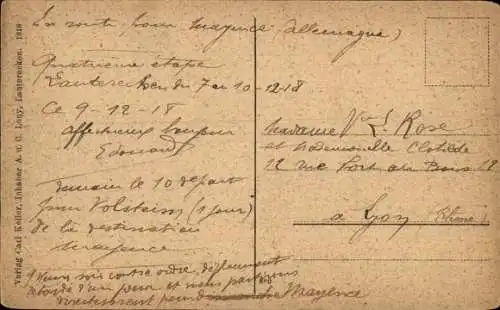 En route pour Mayence (Allemagne)
Quatrième étape
Lauterecken du 7 au 10-12-18
Ce 9-12-18
affectueux bonjour
Edouard
demain le 10 départ
pour Volstein (1 jour)
de la destination
Mayence
contre ordre,
d'un jour et nous partirons
directement pour Mayence
Madame Vve L. Rose
et Mademoiselle Clotilde
12 rue Port du
à Lyon (Rhône)
Verlag Carl Keller, Inhaber A. u. G. Lony, Lauterecken.